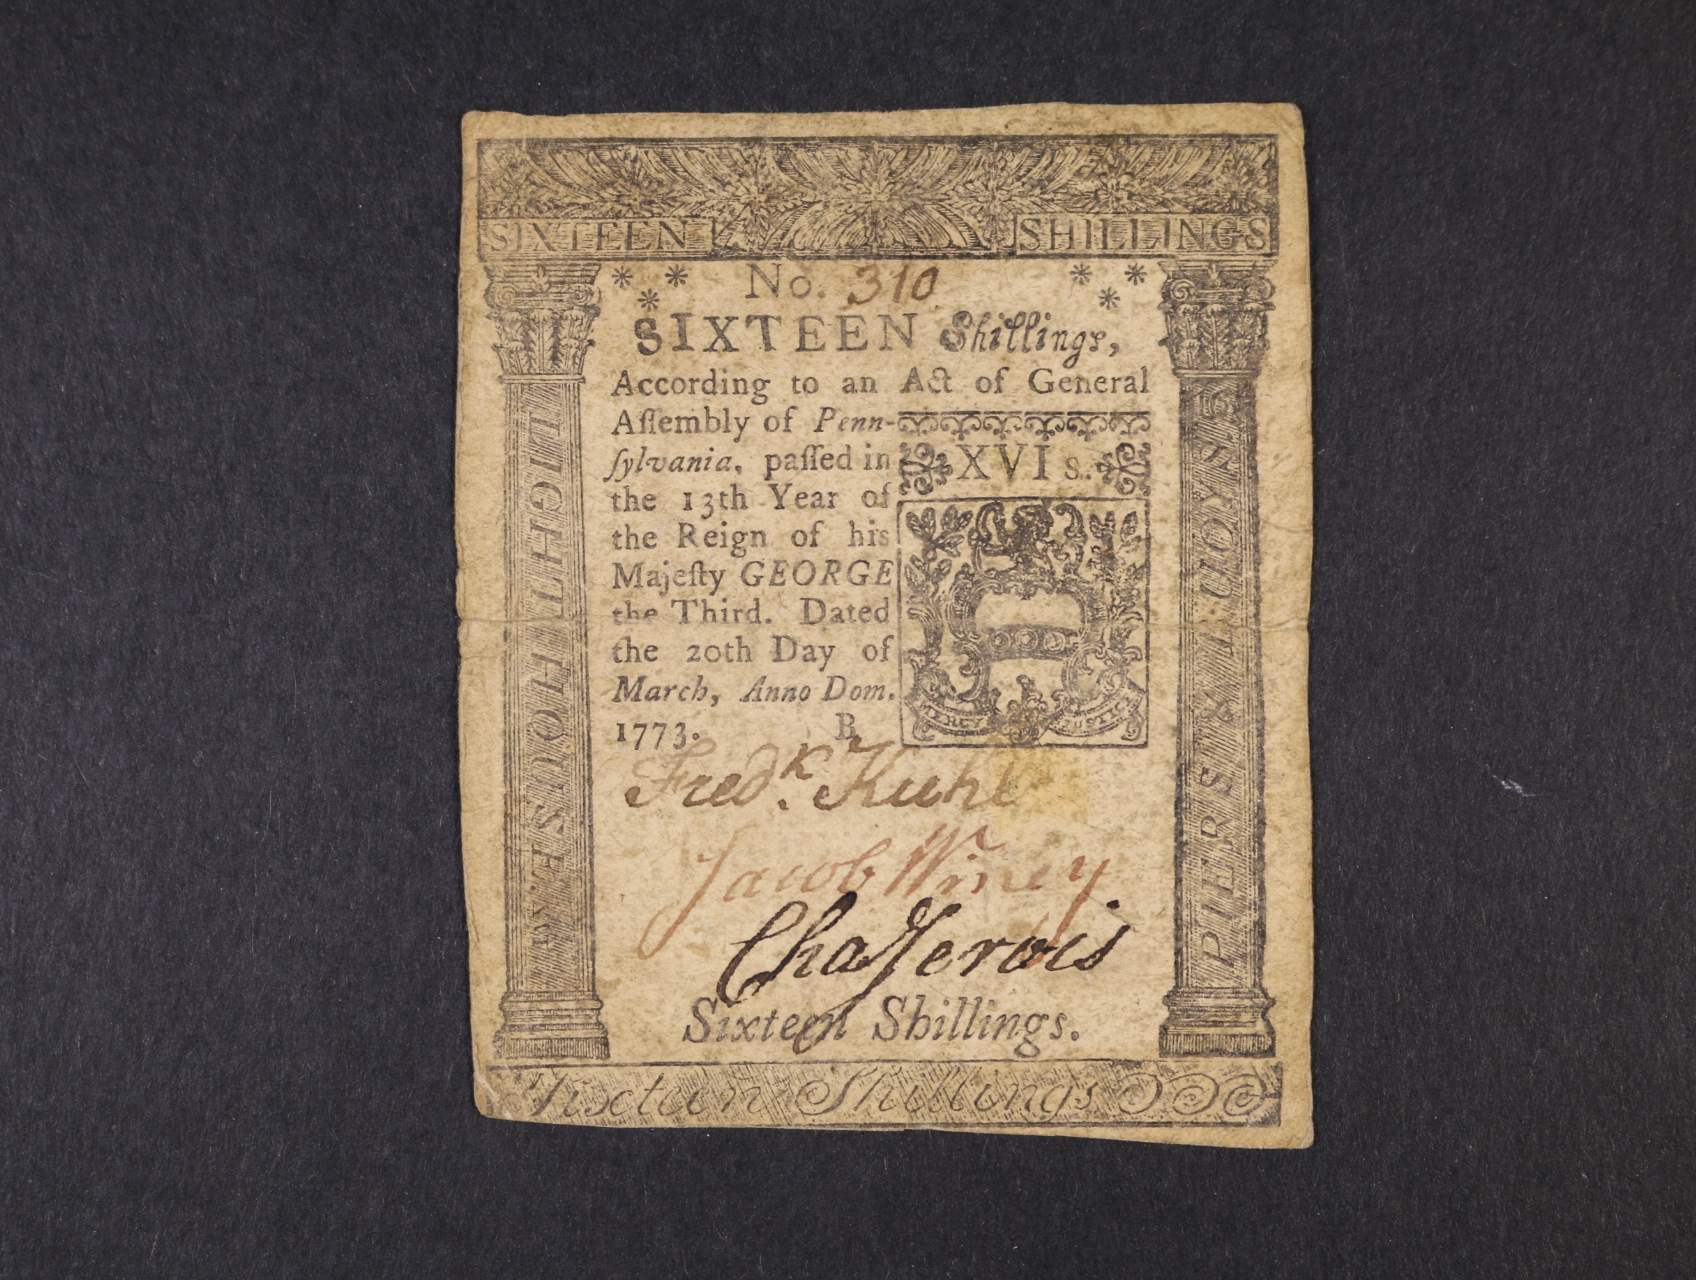 SIXTEEN SHILLINGS
No. 310
SIXTEEN Shillings,
According to an Act of General
Aſſembly of Penn-
ſylvania, paſſed in
the 13th Year of
the Reign of his
Majeſty GEORGE
the Third. Dated
the 20th Day of
March, Anno Dom.
1773. B
XVI s.
MERCY JUSTICE
LIGHT HOUSE
PIERS
Fredk. Kuhl
Jacob Winey
Cha Jervis
Sixteen Shillings.
Sixteen Shillings